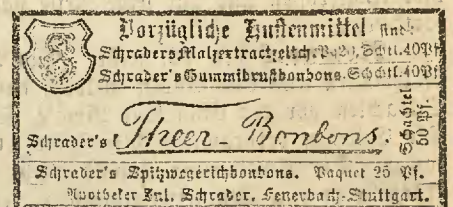 Vorzügliche Hustenmittel sind:
Schraders Malzextractzeltch. Pa. 20, Schtl. 40 Pf.
Schrader's Gummibrustbonbons. Schtl. 40 Pf.
Schrader's Theer-Bonbons. Schachtel 50 Pf.
Schrader's Spitzwegerichbonbons. Paquet 25 Pf.
Apotheker Jul. Schrader, Feuerbach-Stuttgart.